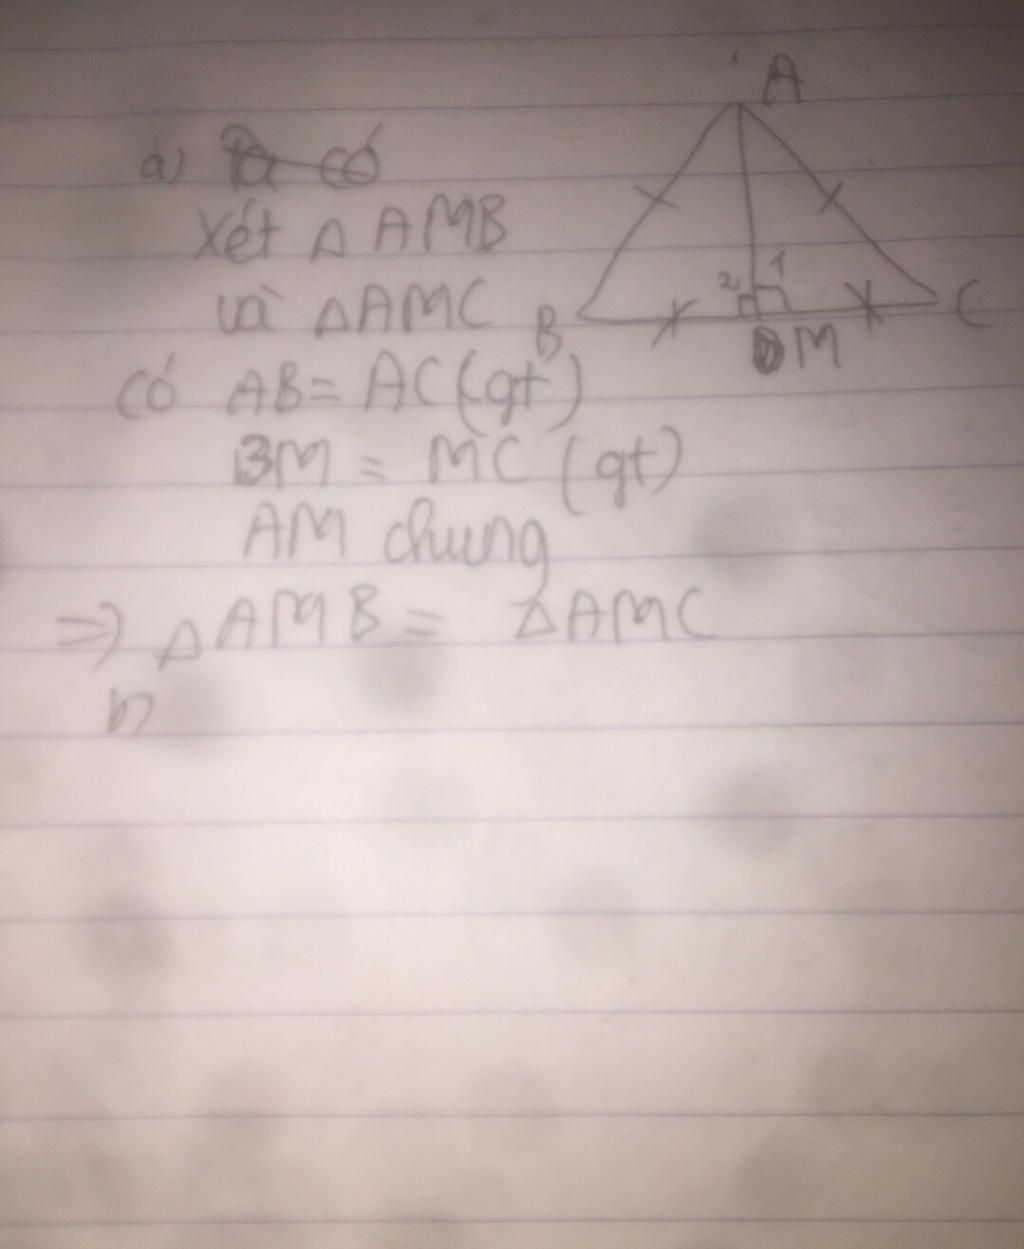 a) Ta có
Xét Δ AMB
và Δ AMC
có AB = AC (gt)
BM = MC (gt)
AM chung
=> Δ AMB = Δ AMC
b)
A
B
C
M
1
2